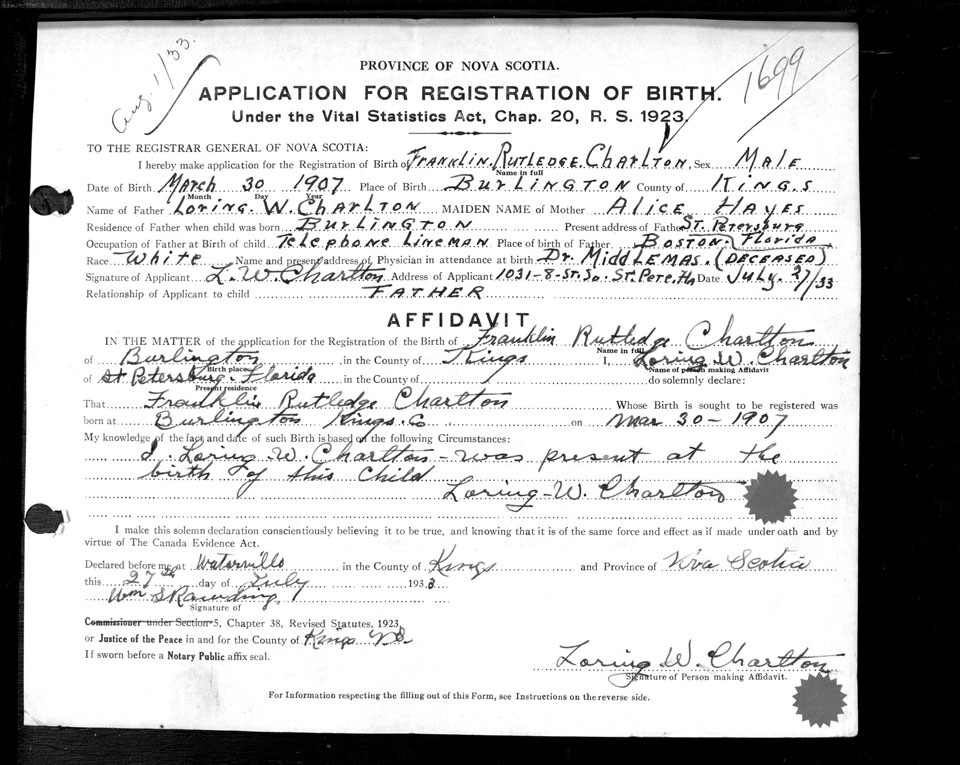 Aug. 1/33.
1699
PROVINCE OF NOVA SCOTIA.
APPLICATION FOR REGISTRATION OF BIRTH.
Under the Vital Statistics Act, Chap. 20, R. S. 1923.
TO THE REGISTRAR GENERAL OF NOVA SCOTIA:
I hereby make application for the Registration of Birth of FRANKLIN. RUTLEDGE. CHARLTON. Sex MALE
Name in full
Date of Birth MARCH 30 1907 Place of Birth BURLINGTON County of KINGS
Month Day Year
Name of Father LORING. W. CHARLTON MAIDEN NAME of Mother ALICE HAYES
Residence of Father when child was born BURLINGTON Present address of Father ST. Petersburg
Occupation of Father at Birth of child TELEPHONE LINEMAN Place of birth of Father BOSTON. Florida
Race WHITE Name and present address of Physician in attendance at birth DR. MIDDLEMAS. (DECEASED)
Signature of Applicant L. W. Charlton Address of Applicant 1031-8-St. So. St. Pete. Date July. 27/33
Relationship of Applicant to child FATHER
AFFIDAVIT
IN THE MATTER of the application for the Registration of the Birth of Franklin Rutledge Charlton
Name in full
of Burlington in the County of Kings I, Loring W. Charlton
Birth place Name of person making Affidavit
of St Petersburg. Florida in the County of do solemnly declare:
Present residence
That Franklin Rutledge Charlton Whose Birth is sought to be registered was
born at Burlington Kings. Co on Mar 30 - 1907
My knowledge of the fact and date of such Birth is based on the following Circumstances:
I. Loring. W. Charlton - was present at the
birth of this Child
Loring - W. Charlton
I make this solemn declaration conscientiously believing it to be true, and knowing that it is of the same force and effect as if made under oath and by
virtue of The Canada Evidence Act.
Declared before me at Waterville in the County of Kings and Province of Nova Scotia
this 27th day of July 1933
Wm S Rawding
Signature of
Commissioner under Section 5, Chapter 38, Revised Statutes, 1923,
or Justice of the Peace in and for the County of Kings NS
If sworn before a Notary Public affix seal.
Loring W. Charlton
Signature of Person making Affidavit.
For Information respecting the filling out of this Form, see Instructions on the reverse side.